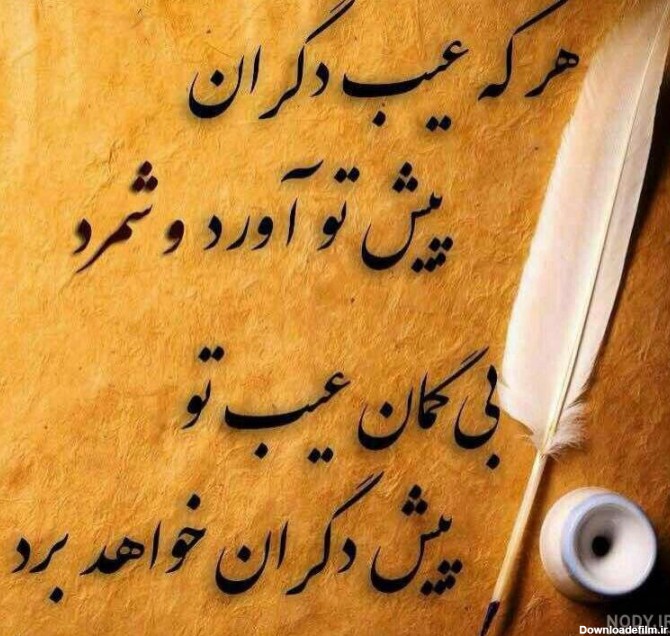 هر که عیب دگران
پیش تو آورد و شمرد
بی گمان عیب تو
پیش دگران خواهد برد
NODY.IR
Downloadefilm.ir